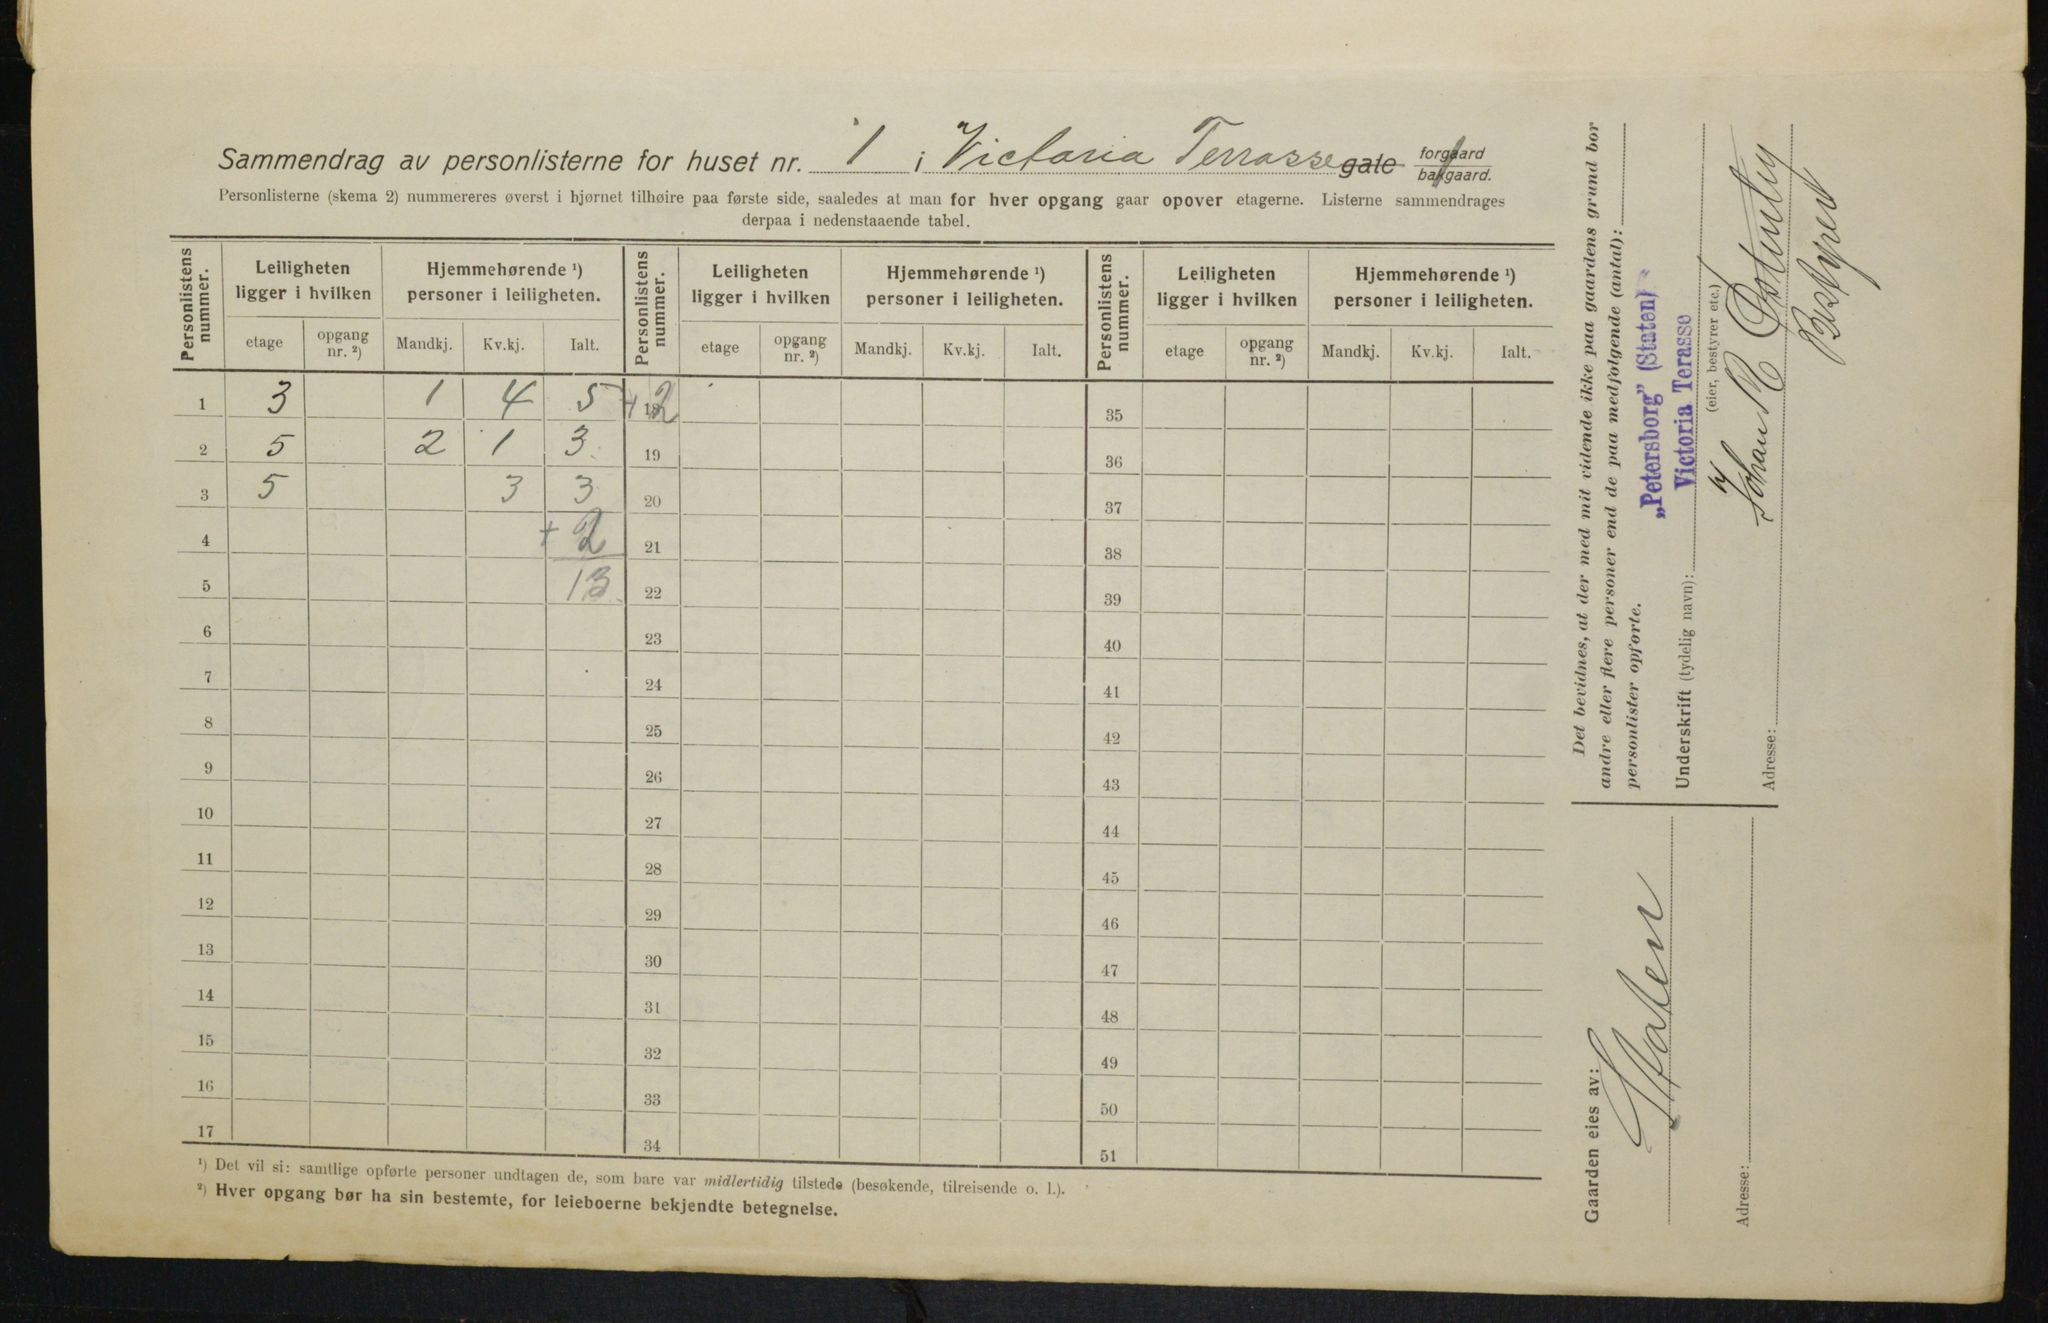 Sammendrag av personlisterne for huset nr. 1 i Victoria Terrasse gate forgaard
bakgaard.
Personlisterne (skema 2) nummereres øverst i hjørnet tilhøire paa første side, saaledes at man for hver opgang gaar opover etagerne. Listerne sammendrages
derpaa i nedenstaaende tabel.
Personlistens nummer. Leiligheten ligger i hvilken Hjemmehørende ¹) personer i leiligheten. Personlistens nummer. Leiligheten ligger i hvilken Hjemmehørende ¹) personer i leiligheten. Personlistens nummer. Leiligheten ligger i hvilken Hjemmehørende ¹) personer i leiligheten.
etage opgang nr. ²) Mandkj. Kv.kj. Ialt. etage opgang nr. ²) Mandkj. Kv.kj. Ialt. etage opgang nr. ²) Mandkj. Kv.kj. Ialt.
1 3 1 4 5 +2 18 35
2 5 2 1 3 19 36
3 5 3 3 20 37
4 + 2 21 38
5 13 22 39
6 23 40
7 24 41
8 25 42
9 26 43
10 27 44
11 28 45
12 29 46
13 30 47
14 31 48
15 32 49
16 33 50
17 34 51
¹) Det vil si: samtlige opførte personer undtagen de, som bare var midlertidig tilstede (besøkende, tilreisende o. l.).
²) Hver opgang bør ha sin bestemte, for leieboerne bekjendte betegnelse.
Det bevidnes, at der med mit vidende ikke paa gaardens grund bor
andre eller flere personer end de paa medfølgende (antal):
personlister opførte.
„Petersborg" (Staten)
Victoria Terasse
Underskrift (tydelig navn):
(eier, bestyrer etc.)
Johan R
Bestyrer
Adresse:
Gaarden eies av:
Staten
Adresse: